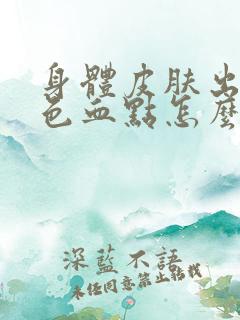 身體皮肤出
色血點怎麼
深藍不語
未任同意禁止转載